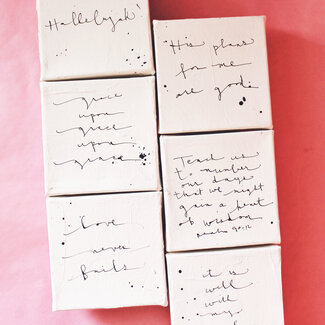 Hallelujah!
grace
upon
grace
upon
grace
Love
never
fails
His plans
for me
are good.
Teach us
to number
our days
that we might
gain a heart
of wisdom
psalm 90:12
it is
well
with
my